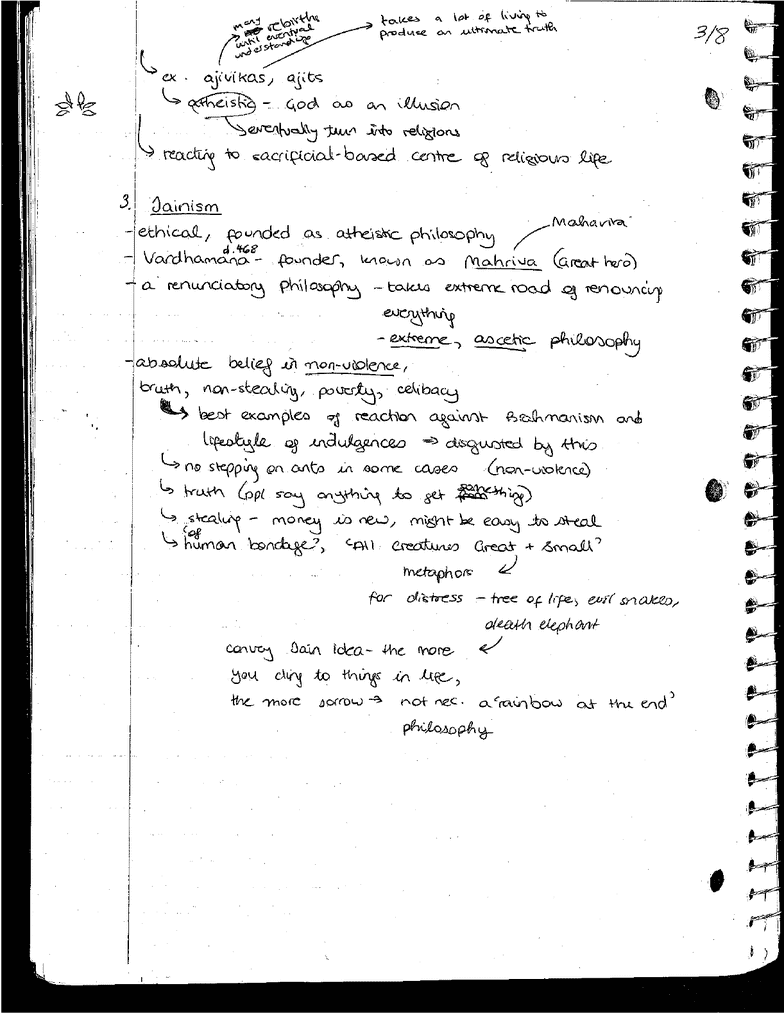 many rebirths until eventual understandings
takes a lot of living to
produce an ultimate truth
3/8
ex. ajivikas, ajits
atheistic - God as an illusion
eventually turn into religions
reacting to sacrificial-based centre of religious life
3. Jainism
- ethical, founded as atheistic philosophy
Mahavira
- Vardhamana d.468 - founder, known as Mahriva (Great hero)
- a renunciatory philosophy - takes extreme road of renouncing
everything
- extreme, ascetic philosophy
- absolute belief in non-violence,
truth, non-stealing, poverty, celibacy
best examples of reaction against Brahmanism and
lifestyle of indulgences ⇒ disgusted by this
no stepping on ants in some cases (non-violence)
truth (ppl say anything to get something)
stealing - money is new, might be easy to steal
'of human bondage', 'All creatures Great + Small'
metaphors
for distress - tree of life, evil snakes,
death elephant
convey Jain Idea - the more
you cling to things in life,
the more sorrow → not nec. a 'rainbow at the end'
philosophy